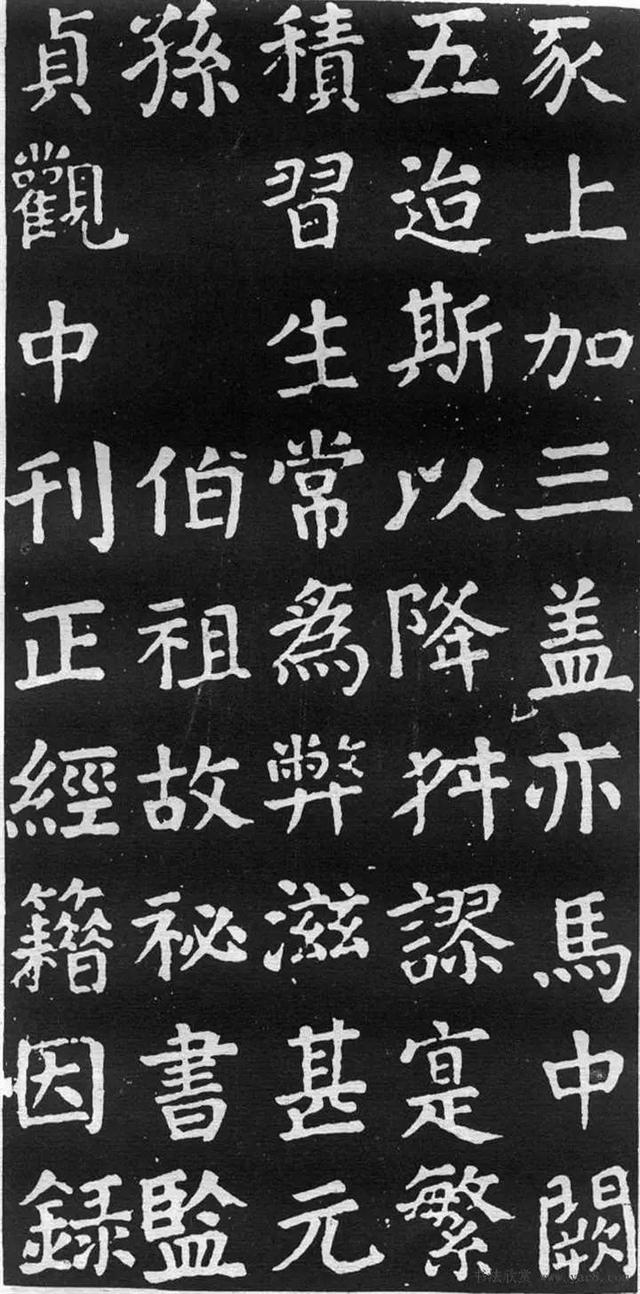 豕上加三盖亦馬中闕
五迨斯以降舛謬寔繁
積習生常為弊滋甚元
孫 伯祖故祕書監
貞觀中刊正經籍因録
书法欣赏